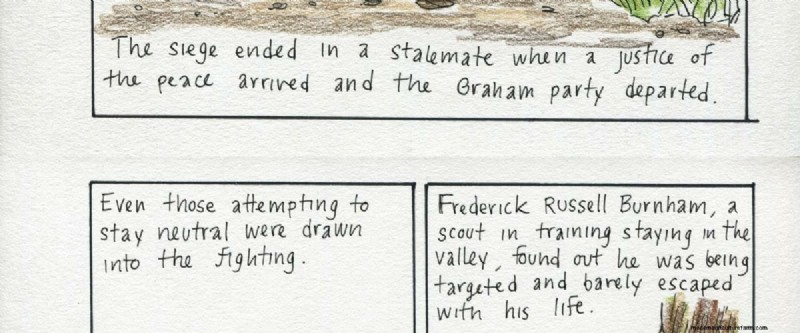 The siege ended in a stalemate when a justice of
the peace arrived and the Graham party departed.
Even those attempting to
stay neutral were drawn
into the fighting.
Frederick Russell Burnham, a
scout in training staying in the
valley, found out he was being
targeted and barely escaped
with his life.